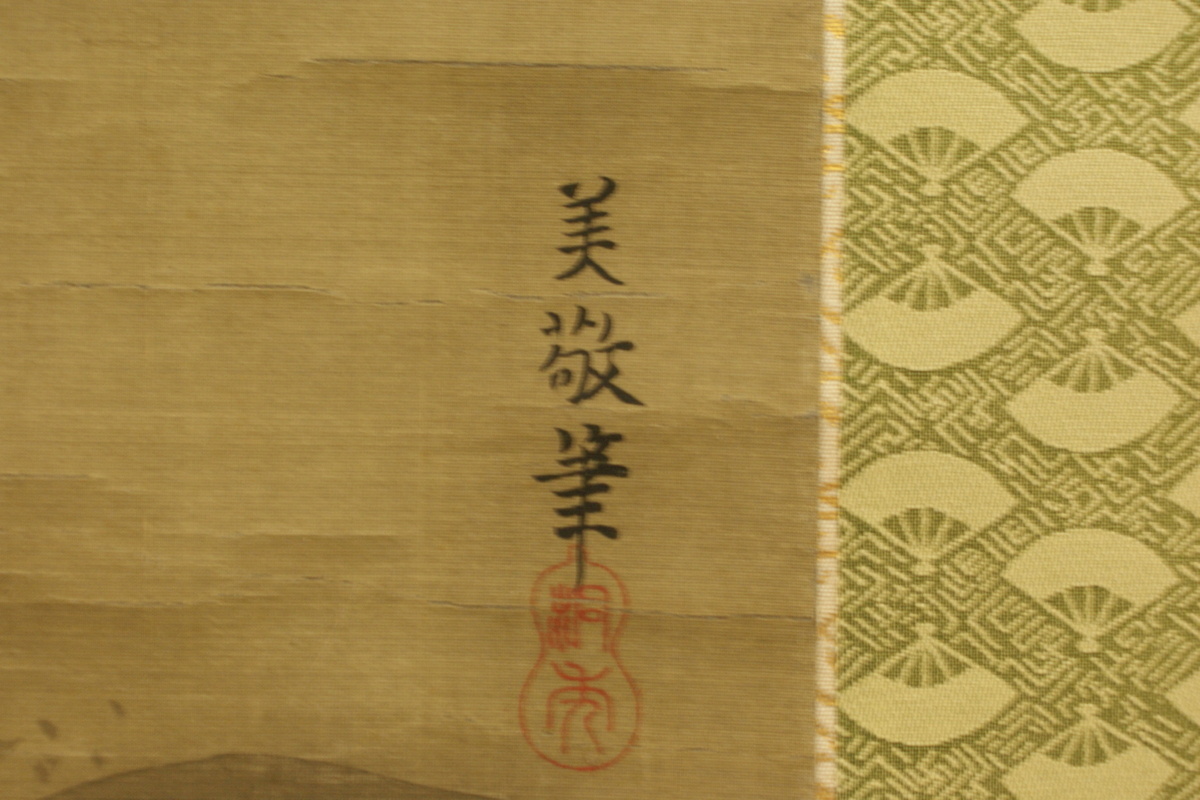 美敬筆